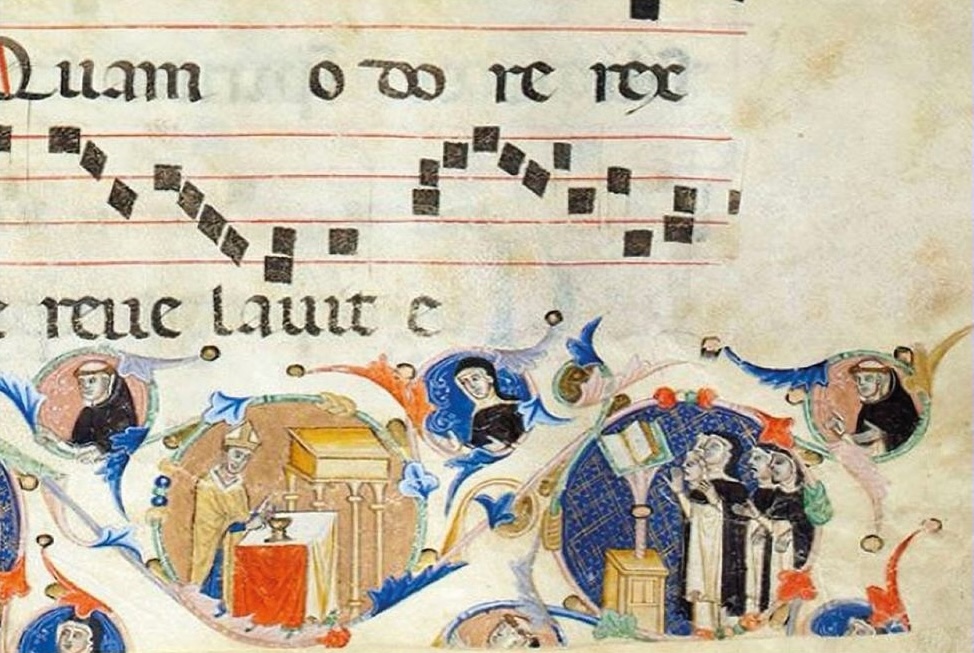 Quam o do re rex
e reue lauit e